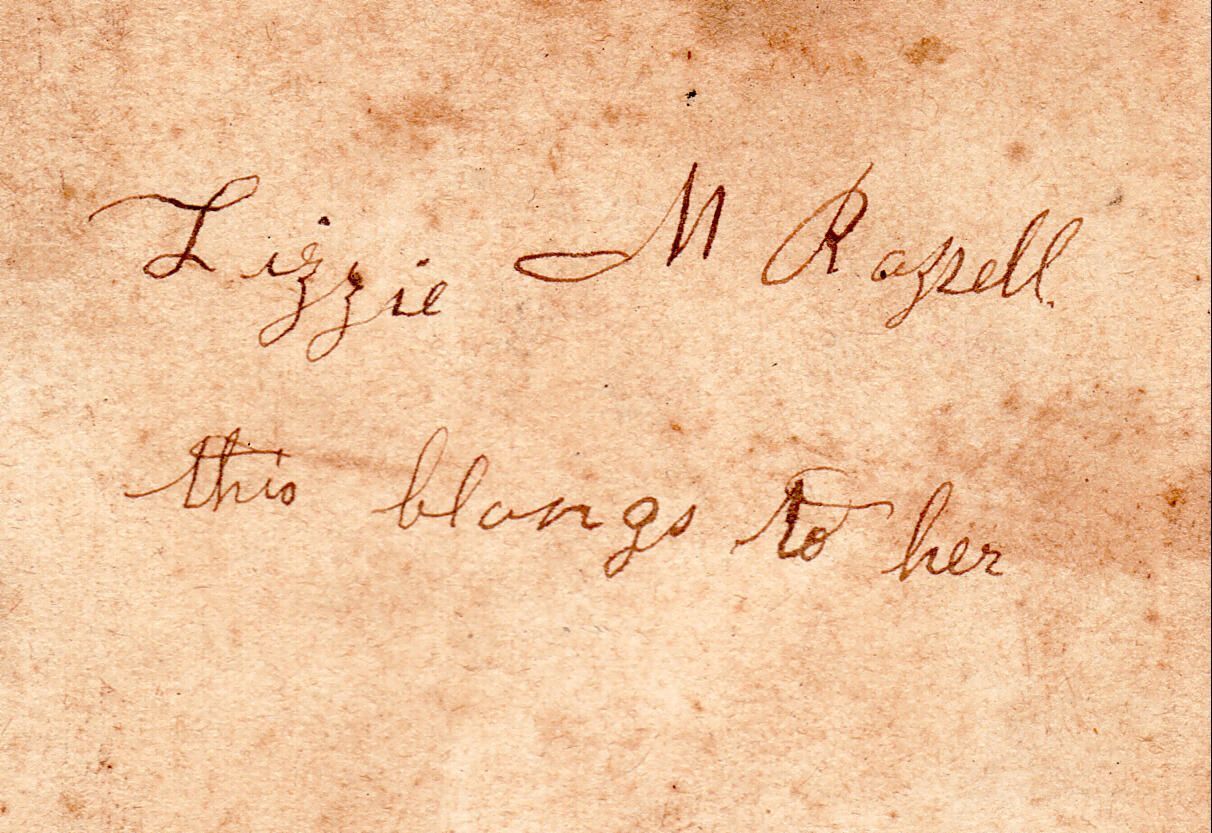 Lizzie M Razzell.
this blongs to her